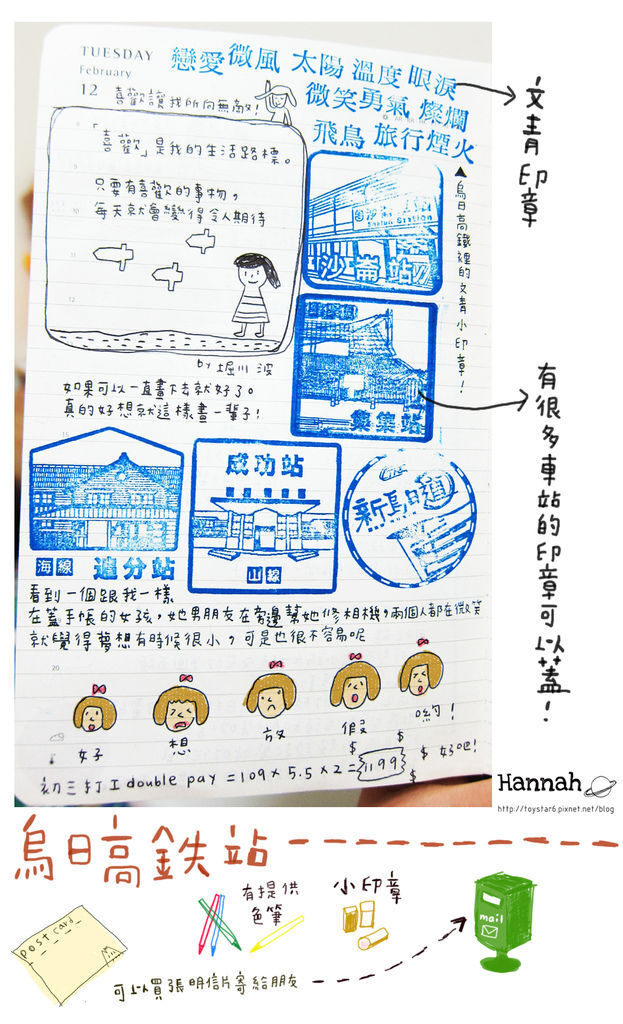 TUESDAY
February
12
喜歡讓我所向無敵!
戀愛 微風 太陽 溫度 眼淚
微笑 勇氣 燦爛
飛鳥 旅行 煙火
文青印章
▲烏日高鐵裡的文青小印章!
「喜歡」是我的生活路標。
只要有喜歡的事物,
每天就會變得令人期待
by 堀川 波
沙崙站
Station
集集站
有很多車站的印章可以蓋!
如果可以一直畫下去就好了。
真的好想就這樣畫一輩子!
海線 追分站
成功站
山線
新烏日
看到一個跟我一樣
在蓋手帳的女孩,她男朋友在旁邊幫她修相機,兩個人都在微笑
就覺得夢想有時候很小,可是也很不容易呢
好 想 放 假 喲!
初三打工double pay = 109 × 5.5 × 2 = 1199
$ $ $ $ 好吧!
Hannah
http://toystar6.pixnet.net/blog
烏日高鉄站
post card
有提供
色筆
小印章
mail
可以買張明信片寄給朋友